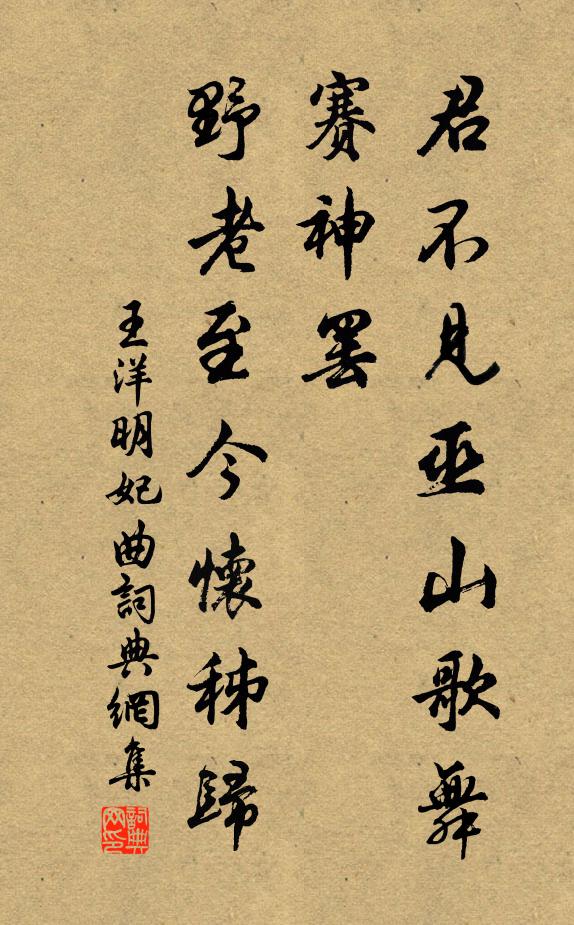 君不見巫山歌舞
賽神罷
野老至今懷秭歸
王洋明妃曲詞典網集
詞典網印